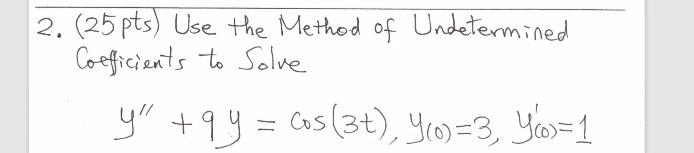 2. (25 pts) Use the Method of Undetermined
Coefficients to Solve
y'' + 9y = cos(3t), y(0)=3, y'(0)=1